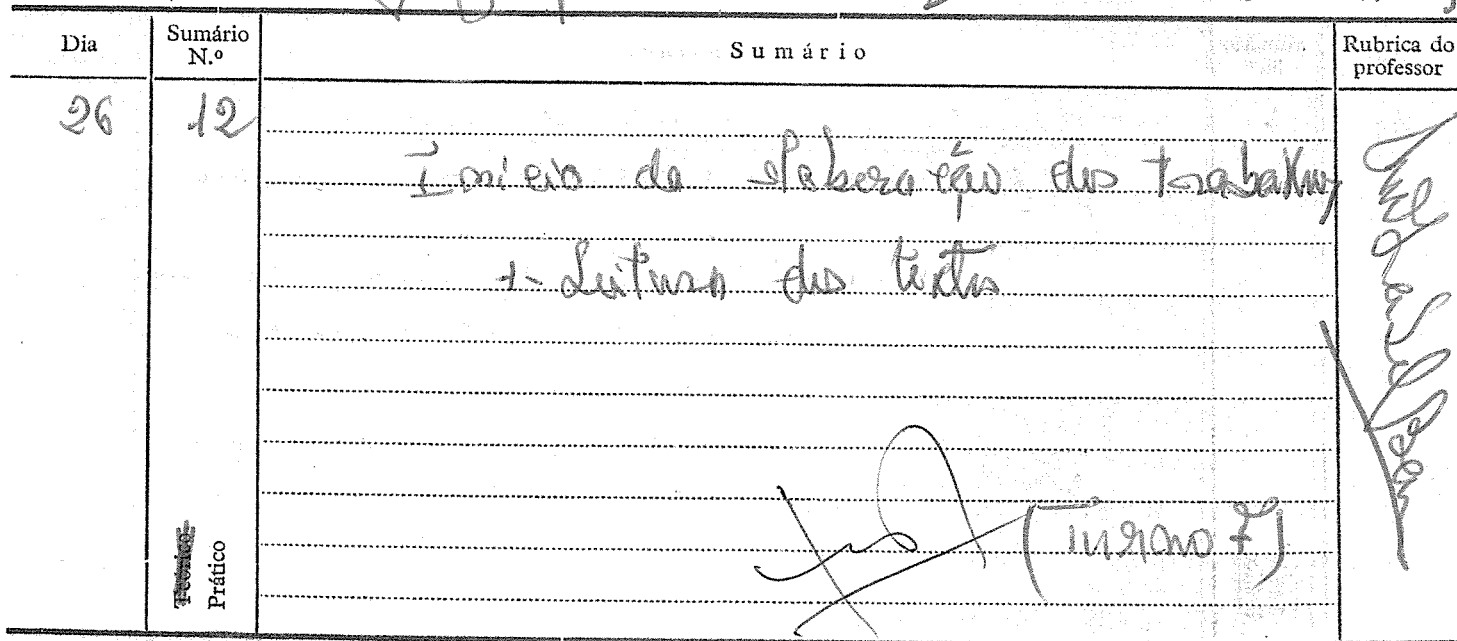 Dia
Sumário N.º
Sumário
Rubrica do professor
26
12
Início da elaboração dos trabalhos
+ Leitura dos textos
(Turno 7)
Teórico
Prático